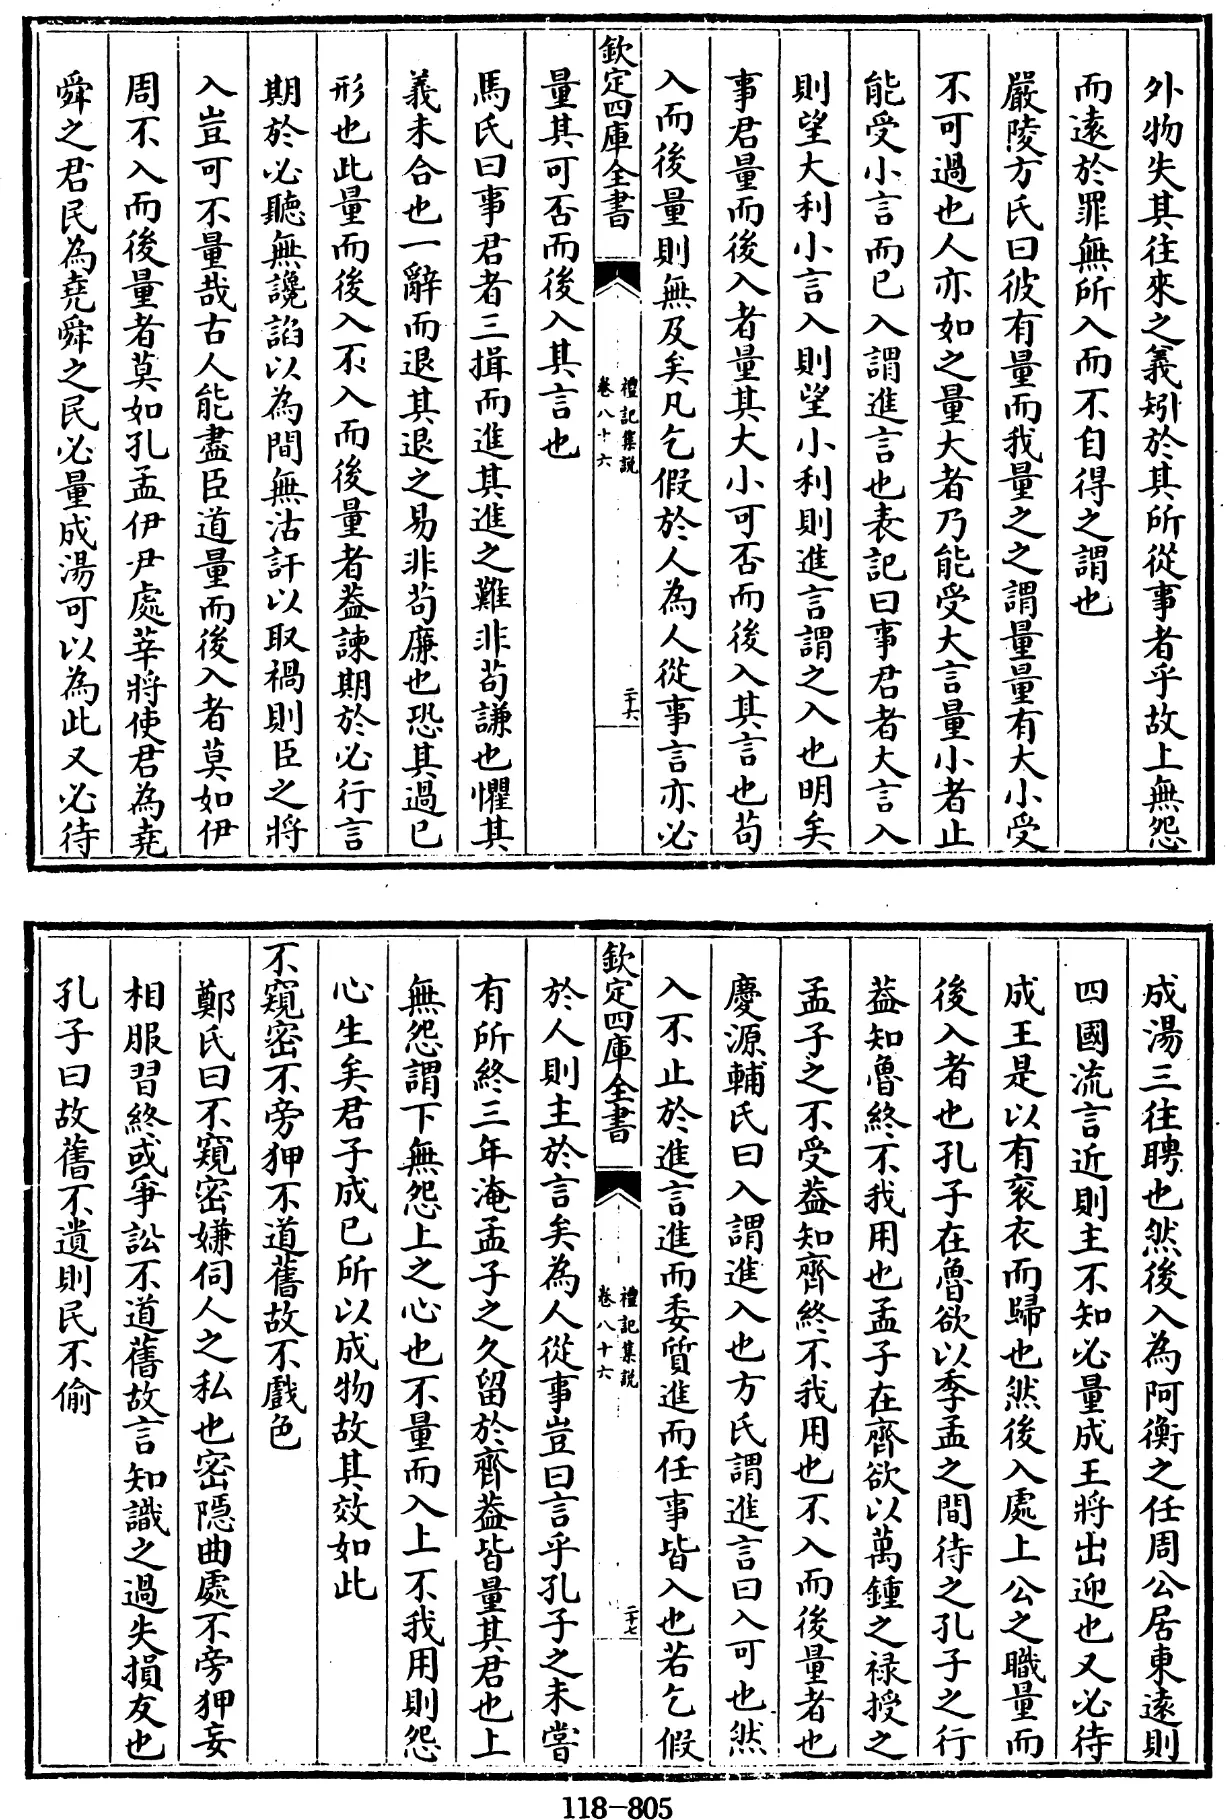 外物失其往來之義矧於其所從事者乎故上無怨
而遠於罪無所入而不自得之謂也
嚴陵方氏曰彼有量而我量之之謂量量有大小受
不可過也人亦如之量大者乃能受大言量小者止
能受小言而已入謂進言也表記曰事君者大言入
則望大利小言入則望小利則進言謂之入也明矣
事君量而後入者量其大小可否而後入其言也苟
入而後量則無及矣凡乞假於人為人從事言亦必
欽定四庫全書
禮記集說
卷八十六
二十六
量其可否而後入其言也
馬氏曰事君者三揖而進其進之難非苟謙也懼其
義未合也一辭而退其退之易非苟廉也恐其過已
形也此量而後入不入而後量者葢諫期於必行言
期於必聽無讒謟以為間無沽訐以取禍則臣之將
入豈可不量哉古人能盡臣道量而後入者莫如伊
周不入而後量者莫如孔孟伊尹處莘將使君為堯
舜之君民為堯舜之民必量成湯可以為此又必待
成湯三往聘也然後入為阿衡之任周公居東遠則
四國流言近則主不知必量成王將出迎也又必待
成王是以有衮衣而歸也然後入處上公之職量而
後入者也孔子在魯欲以季孟之間待之孔子之行
葢知魯終不我用也孟子在齊欲以萬鍾之禄授之
孟子之不受葢知齊終不我用也不入而後量者也
慶源輔氏曰入謂進入也方氏謂進言曰入可也然
入不止於進言進而委質進而任事皆入也若乞假
欽定四庫全書
禮記集說
卷八十六
二十七
於人則主於言矣為人從事豈曰言乎孔子之未嘗
有所終三年淹孟子之久留於齊葢皆量其君也上
無怨謂下無怨上之心也不量而入上不我用則怨
心生矣君子成已所以成物故其效如此
不窺密不旁狎不道舊故不戲色
鄭氏曰不窺密嫌伺人之私也密隱曲處不旁狎妄
相服習終或爭訟不道舊故言知識之過失損友也
孔子曰故舊不遺則民不偷
118-805